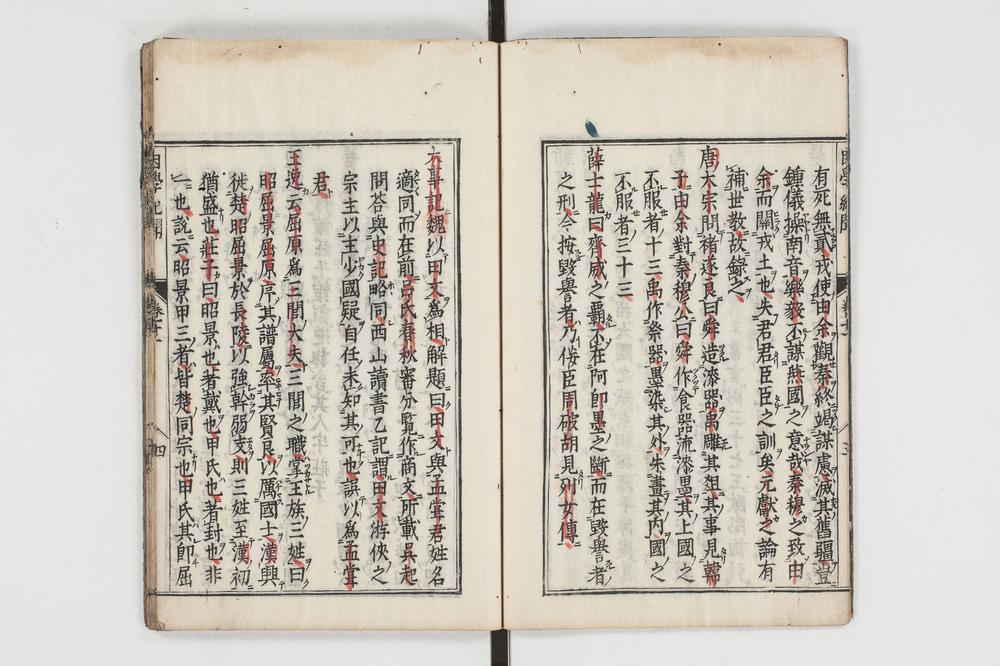 有死無貳戎使由余觀秦終竭謀慮滅其舊疆豈
鍾儀操南音樂毅不謀燕國之意哉秦穆之致由
余而闢戎土也失君君臣臣之訓矣元獻之論有
補世教故錄之
唐太宗問褚遂良曰舜造漆器禹雕其俎其事見韓
子由余對秦穆公曰舜作食器流漆墨其上國之
不服者十三禹作祭器墨染其外朱畫其內國之
不服者三十三
薛士龍曰齊威之霸不在阿即墨之斷而在毀譽者
之刑今按毀譽者乃佞臣周破胡見列女傳
大事記魏以田文為相解題曰田文與孟嘗君姓名
適同而在前呂氏春秋審分覽作商文所載吳起
問答與史記略同西山讀書乙記謂田文游俠之
宗主以主少國疑自任未知其可也誤以為孟嘗
君
王逸云屈原為三閭大夫三閭之職掌王族三姓曰
昭屈景屈原序其譜屬率其賢良以厲國士漢興
徙楚昭屈景於長陵以強幹弱支則三姓至漢初
猶盛也莊子曰昭景也著戴也甲氏也著封也非
一也說云昭景甲三者皆楚同宗也甲氏其即屈
困學紀聞
卷十一
四